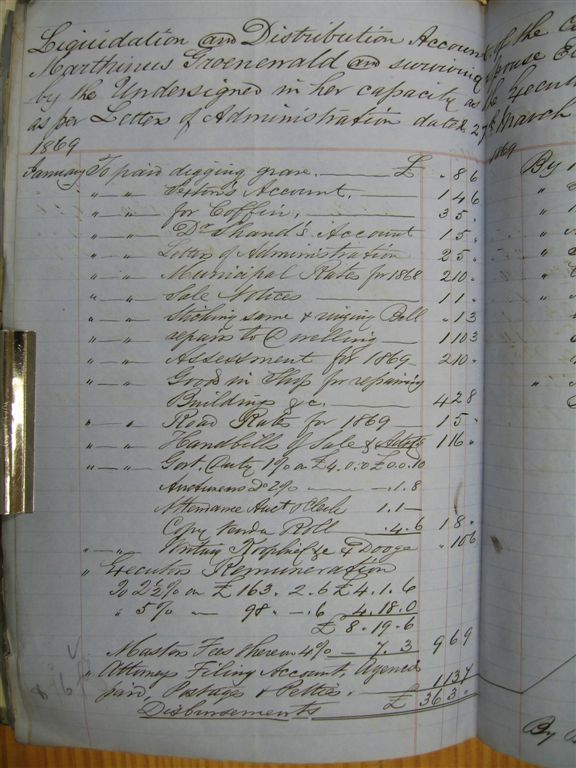 Liquidation and Distribution Account of the
Marthinus Groenewald and surviving Spouse
by the Undersigned in her capacity as
as per Letter of Administration dated 27th March
1869 1869
January To paid digging grave. £ " 8 6
" — " — Sexton's Account, 1 4 6
" — " — for Coffin, 3 5 "
" — " — Dr Shand's Account 1 5 "
" — " — Letter of Administration 2 5 "
" — " — Municipal Rates for 1868 2 10 "
" — " — Sale Notices 1 1 "
" — " — Sticking same & ringing Bell " 1 3
" — " — repairs to Dwelling 1 10 3
" — " — Assessment for 1869 2 10 "
" — " — Goods in Shop for repairing
Building &c. 4 2 8
" — " — Road Rates for 1869 1 5 "
" — " — Handbills of Sale & 1 16 "
" — " — Govt. Duty 1% on £4.0.0 £0.0.10
Auctioneers Do 2% — .1.8
Attendance Auct & Clerk 1.1 —
Copy Vendu Roll .4.6 1 8 "
" — " — Writing " 10 6
" Executors Remuneration
To 2½% on £163. 2. 6 £4. 1. 6
" 5% — 98. — .6 4.18.0
£8.19.6
Masters Fees thereon 4% — 7.3 9 6 9
" Attorneys Filing Account, Agency
paid, Postages & Petties. 1 13 7
Disbursements £ 36 3 "
By
By